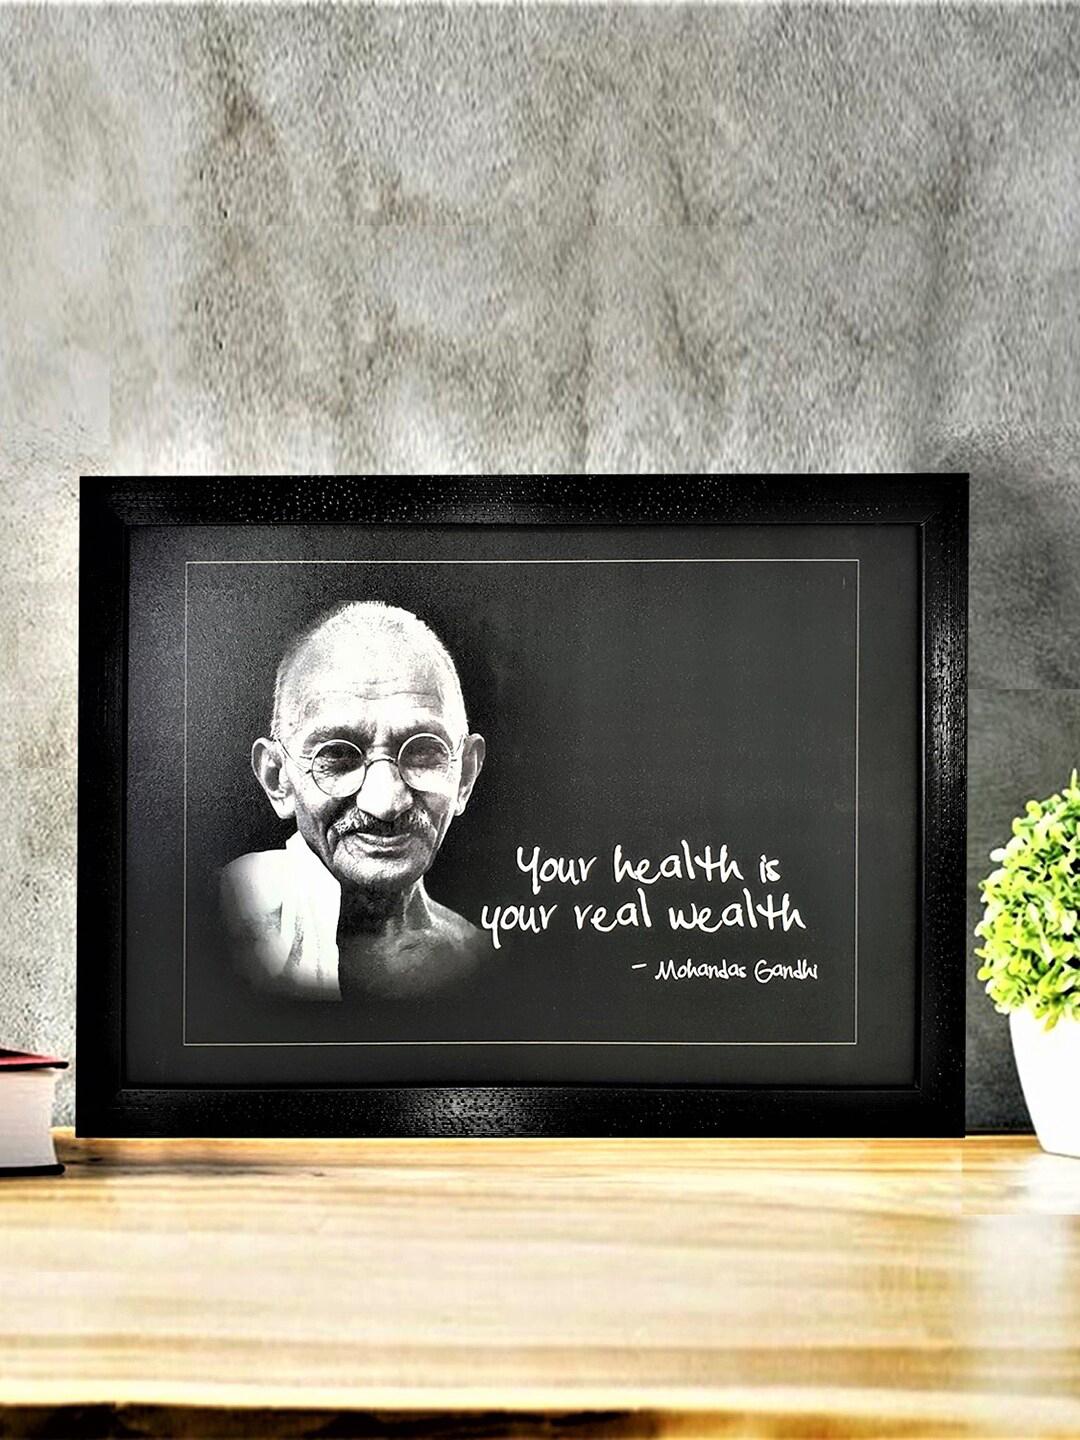 Your health is
your real wealth
- Mohandas Gandhi